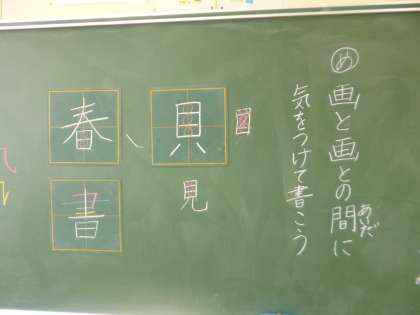 め 画と画との間に
あいだ
気をつけて書こう
目
貝
見
春
書